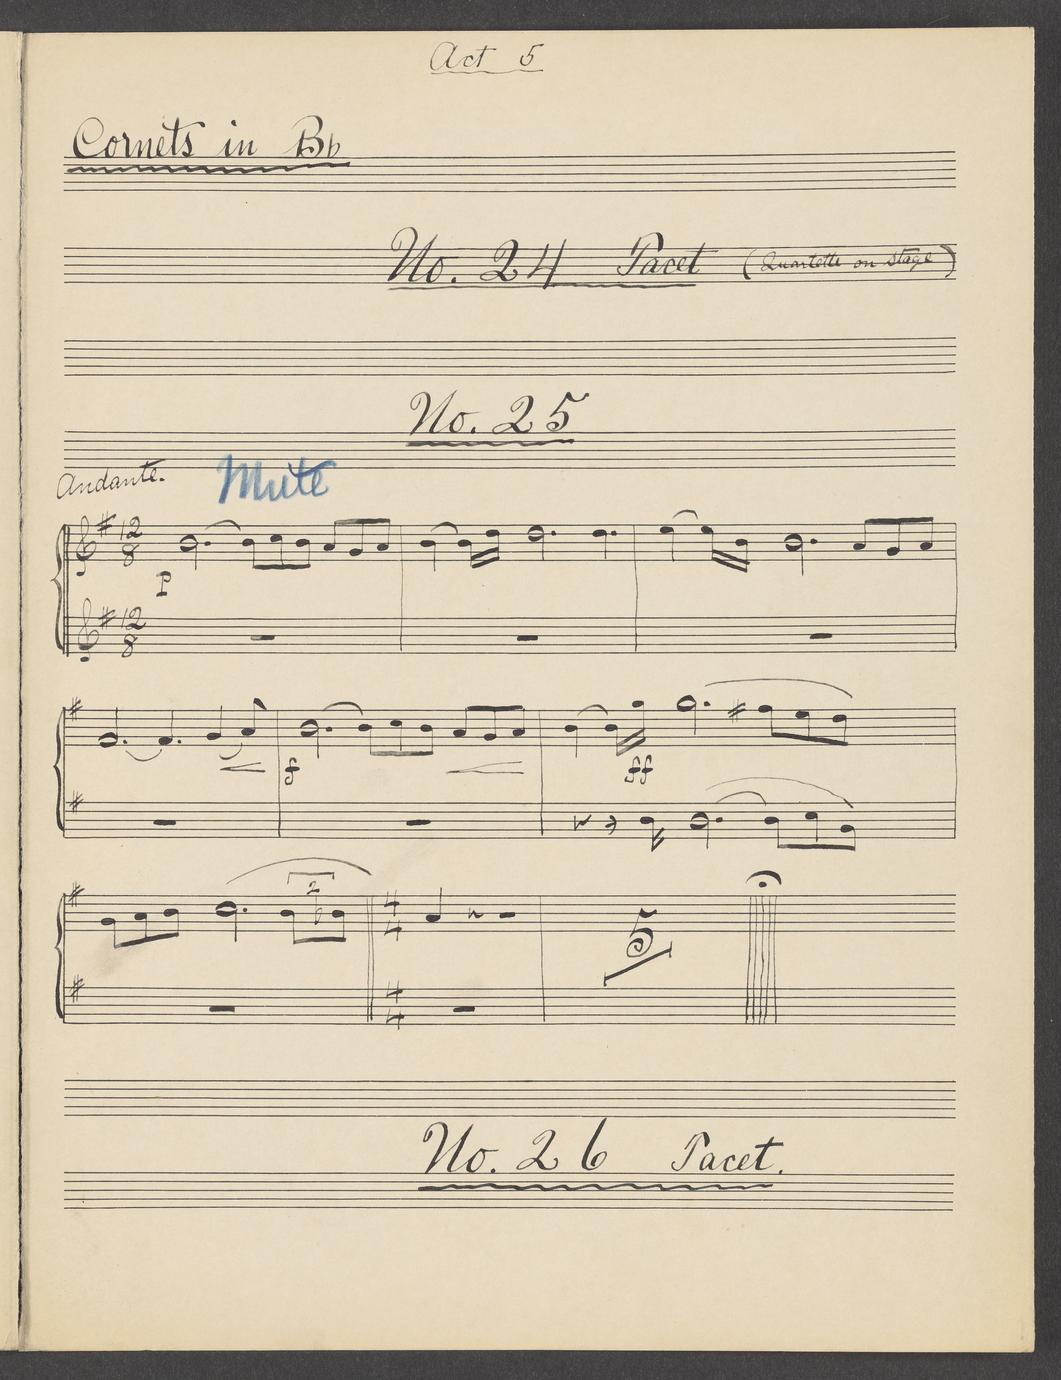 Act 5
Cornets in B♭
No. 24 Tacet (Quartette on stage)
No. 25
Andante. Mute
12
8
P
12
8
f ff
2
4
4
5
4
4
No. 26 Tacet.